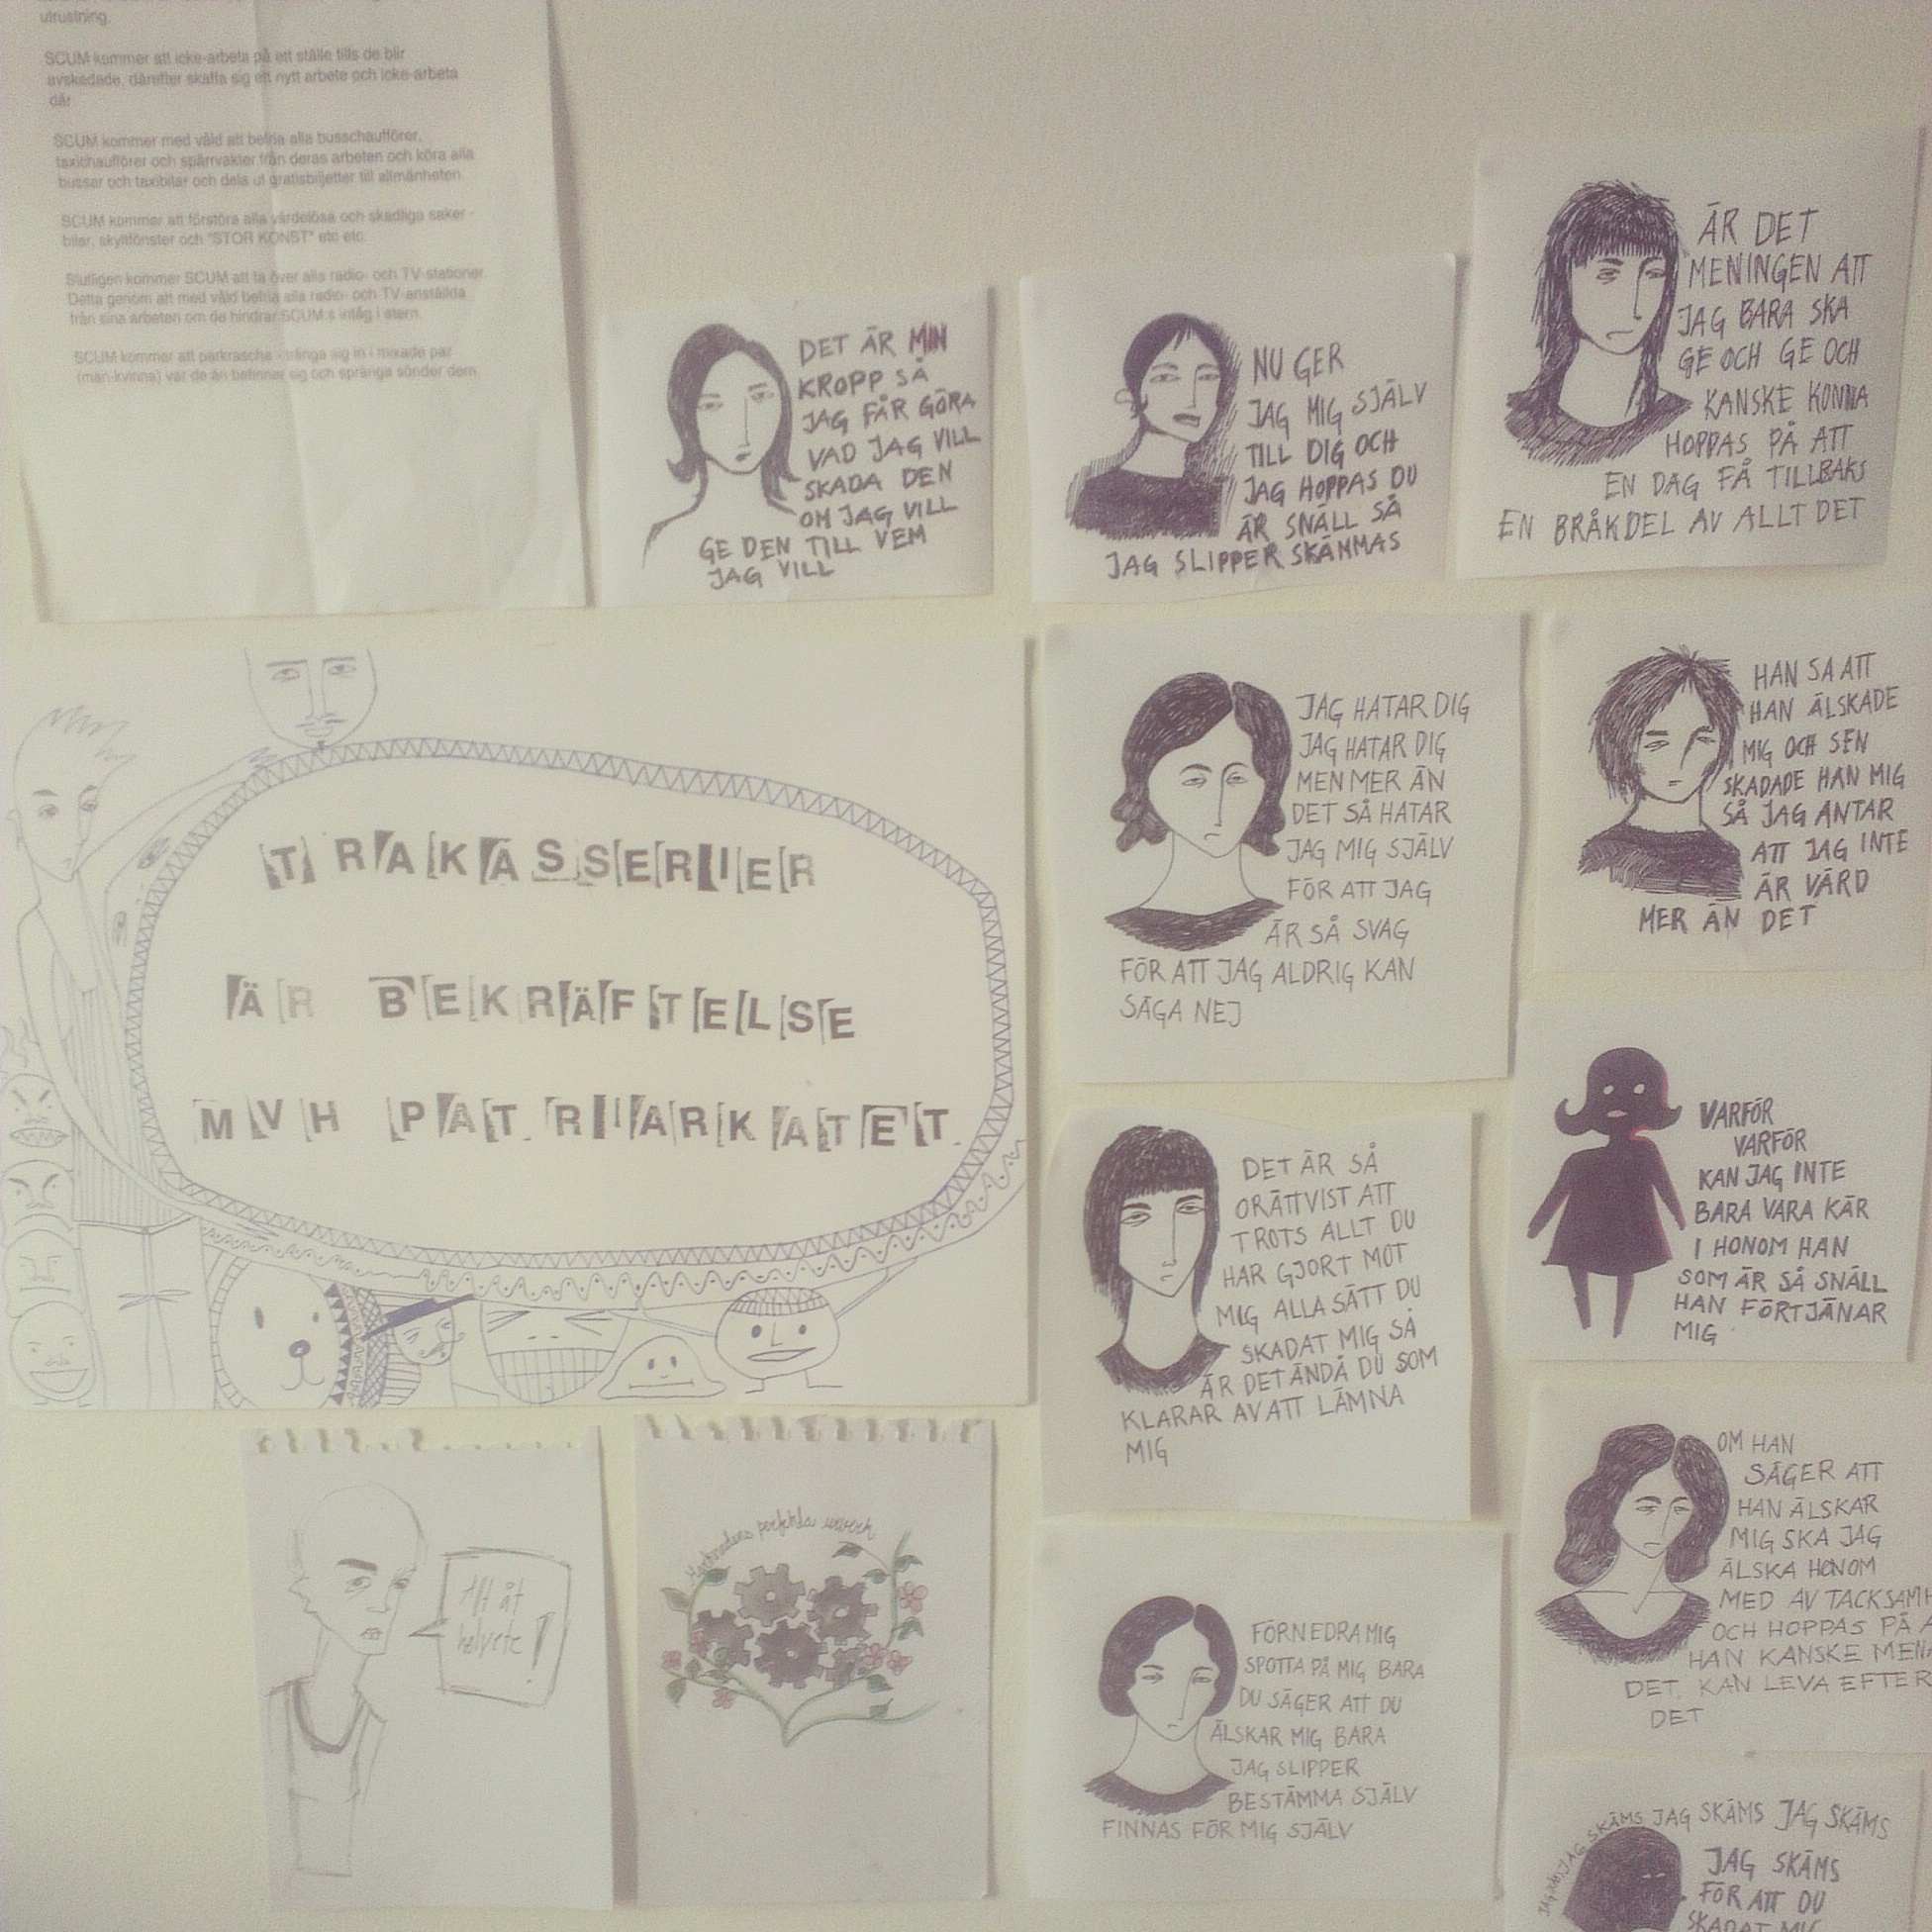 utrustning.
SCUM kommer att icke-arbeta på ett ställe tills de blir
avskedade, därefter skaffa sig ett nytt arbete och icke-arbeta
där.
SCUM kommer med våld att befria alla busschaufförer,
taxichaufförer och spärrvakter från deras arbeten och köra alla
bussar och taxibilar och dela ut gratisbiljetter till allmänheten.
SCUM kommer att förstöra alla värdelösa och skadliga saker -
bilar, skyltfönster och "STOR KONST" etc etc.
Slutligen kommer SCUM att ta över alla radio- och TV-stationer.
Detta genom att med våld befria alla radio- och TV-anställda
från sina arbeten om de hindrar SCUM:s intåg i etern.
SCUM kommer att parkrascha - tränga sig in i mixade par
(man-kvinna) var de än befinner sig och spränga sönder dem.
DET ÄR MIN
KROPP SÅ
JAG FÅR GÖRA
VAD JAG VILL
SKADA DEN
OM JAG VILL
GE DEN TILL VEM
JAG VILL
NU GER
JAG MIG SJÄLV
TILL DIG OCH
JAG HOPPAS DU
ÄR SNÄLL SÅ
JAG SLIPPER SKÄMMAS
ÄR DET
MENINGEN ATT
JAG BARA SKA
GE OCH GE OCH
KANSKE KUNNA
HOPPAS PÅ ATT
EN DAG FÅ TILLBAKS
EN BRÅKDEL AV ALLT DET
TRAKASSERIER
ÄR BEKRÄFTELSE
MVH PATRIARKATET.
JAG HATAR DIG
JAG HATAR DIG
MEN MER ÄN
DET SÅ HATAR
JAG MIG SJÄLV
FÖR ATT JAG
ÄR SÅ SVAG
FÖR ATT JAG ALDRIG KAN
SÄGA NEJ
HAN SA ATT
HAN ÄLSKADE
MIG OCH SEN
SKADADE HAN MIG
SÅ JAG ANTAR
ATT JAG INTE
ÄR VÄRD
MER ÄN DET
DET ÄR SÅ
ORÄTTVIST ATT
TROTS ALLT DU
HAR GJORT MOT
MIG ALLA SÄTT DU
SKADAT MIG SÅ
ÄR DET ÄNDÅ DU SOM
KLARAR AV ATT LÄMNA
MIG
VARFÖR
VARFÖR
KAN JAG INTE
BARA VARA KÄR
I HONOM HAN
SOM ÄR SÅ SNÄLL
HAN FÖRTJÄNAR
MIG
Allt åt
helvete!
Marknadens perfekta urverk
FÖRNEDRA MIG
SPOTTA PÅ MIG BARA
DU SÄGER ATT DU
ÄLSKAR MIG BARA
JAG SLIPPER
BESTÄMMA SJÄLV
FINNAS FÖR MIG SJÄLV
OM HAN
SÄGER ATT
HAN ÄLSKAR
MIG SKA JAG
ÄLSKA HONOM
MED AV TACKSAMH
OCH HOPPAS PÅ A
HAN KANSKE MENA
DET. KAN LEVA EFTER
DET
JAG SKÄMS JAG SKÄMS JAG SKÄMS
JAG SKÄMS
FÖR ATT DU
SKADAT MIG